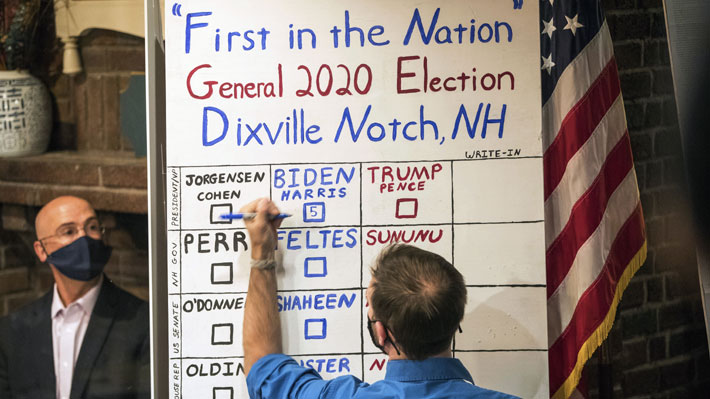 "First in the Nation"
General 2020 Election
Dixville Notch, NH
WRITE-IN
PRESIDENT/VP
JORGENSEN
COHEN
BIDEN
HARRIS
5
TRUMP
PENCE
NH GOV.
PERR
FELTES
SUNUNU
US SENATE
O'DONNE
SHAHEEN
OLDIN